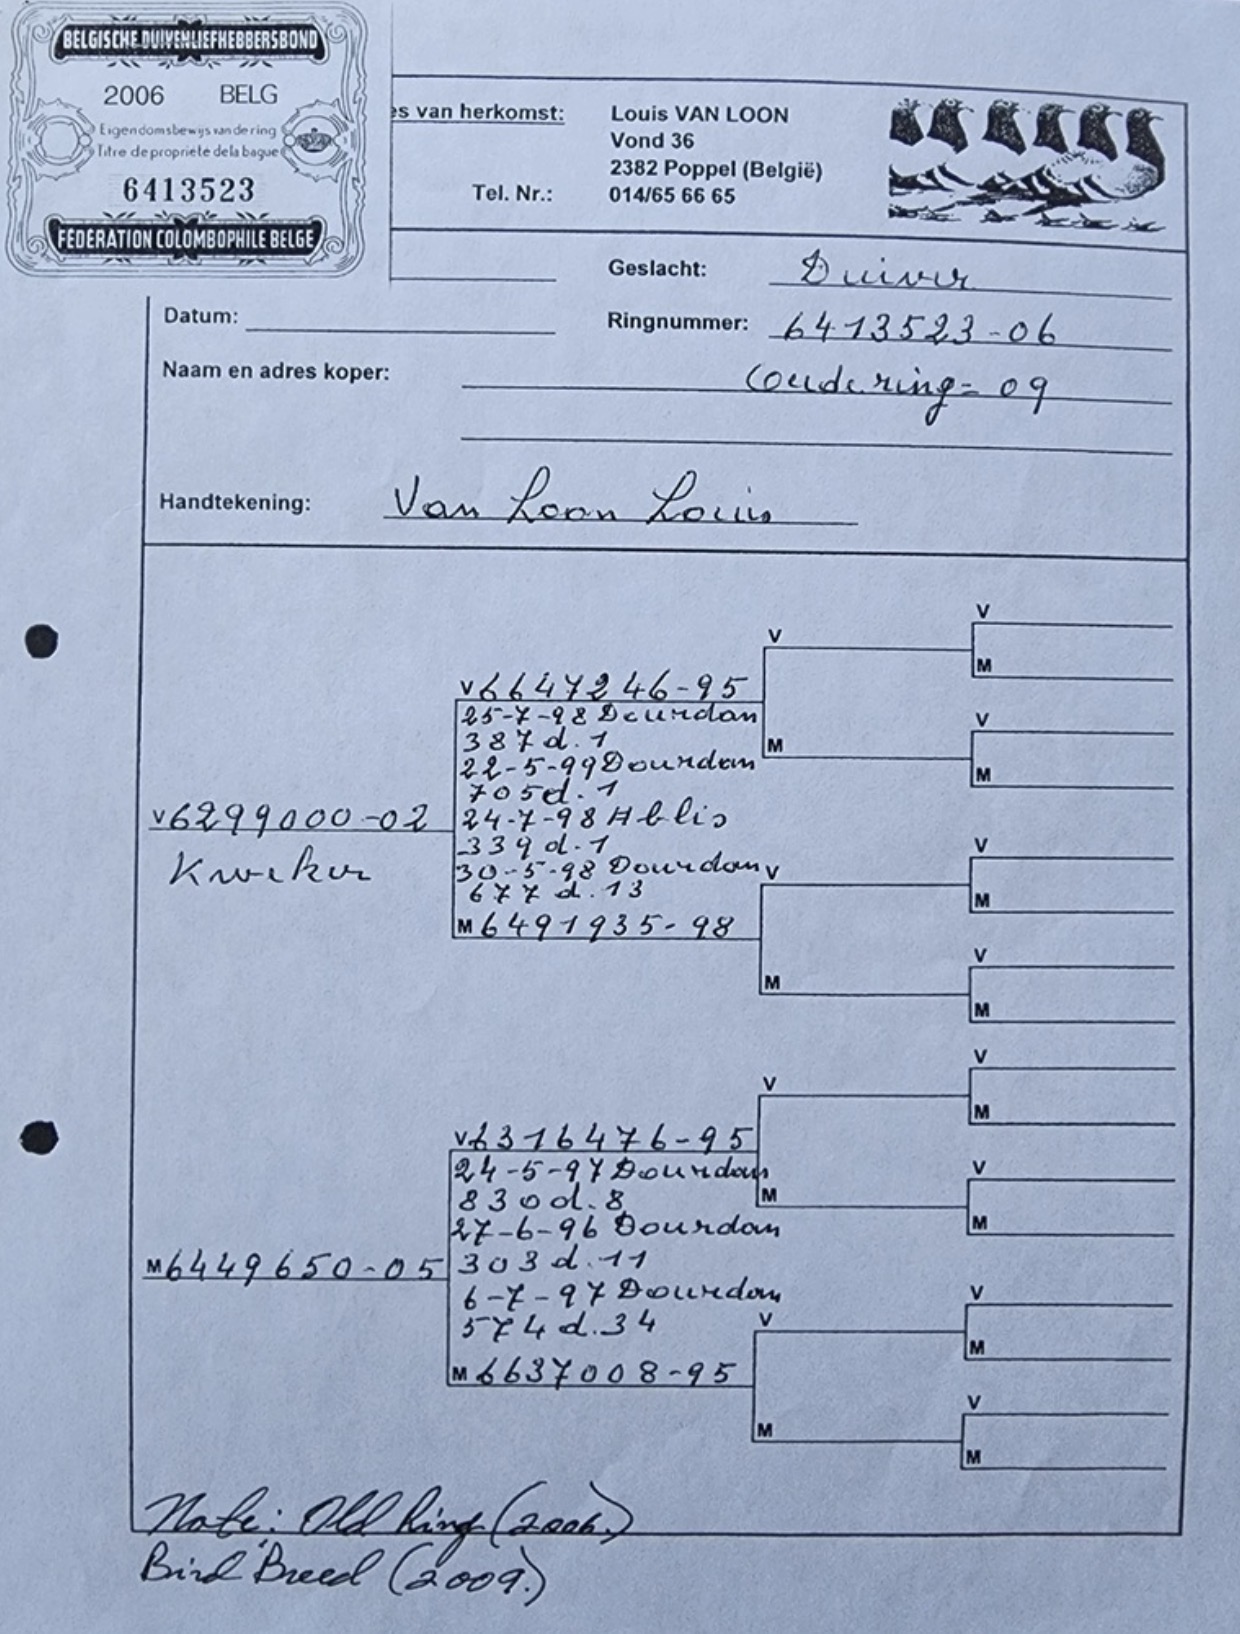 BELGISCHE DUIVENLIEFHEBBERSBOND
2006 BELG
Eigendomsbewijs van de ring
Titre de propriete dela bague
6413523
FEDERATION COLOMBOPHILE BELGE
es van herkomst: Louis VAN LOON
Vond 36
2382 Poppel (België)
Tel. Nr.: 014/65 66 65
Geslacht: Duiver
Datum:
Ringnummer: 6413523-06
Naam en adres koper:
(oude ring = 09
Handtekening: Van Loon Louis
V
V
M
V 6647246-95
25-7-98 Dourdan
V
387 d. 1
M
22-5-99 Dourdan
M
705 d. 1
V 6299000-02
24-7-98 Ablis
339 d. 1
V
Kweker
30-5-98 Dourdan
V
677 d. 13
M
M 6491935-98
V
M
M
V
V
M
V 6316476-95
24-5-97 Dourdan
V
830 d. 8
M
27-6-96 Dourdan
M
M 6449650-05
303 d. 11
6-7-97 Dourdan
V
574 d. 34
V
M
M 6637008-95
V
M
M
Note: Old Ring (2006.)
Bird Breed (2009.)